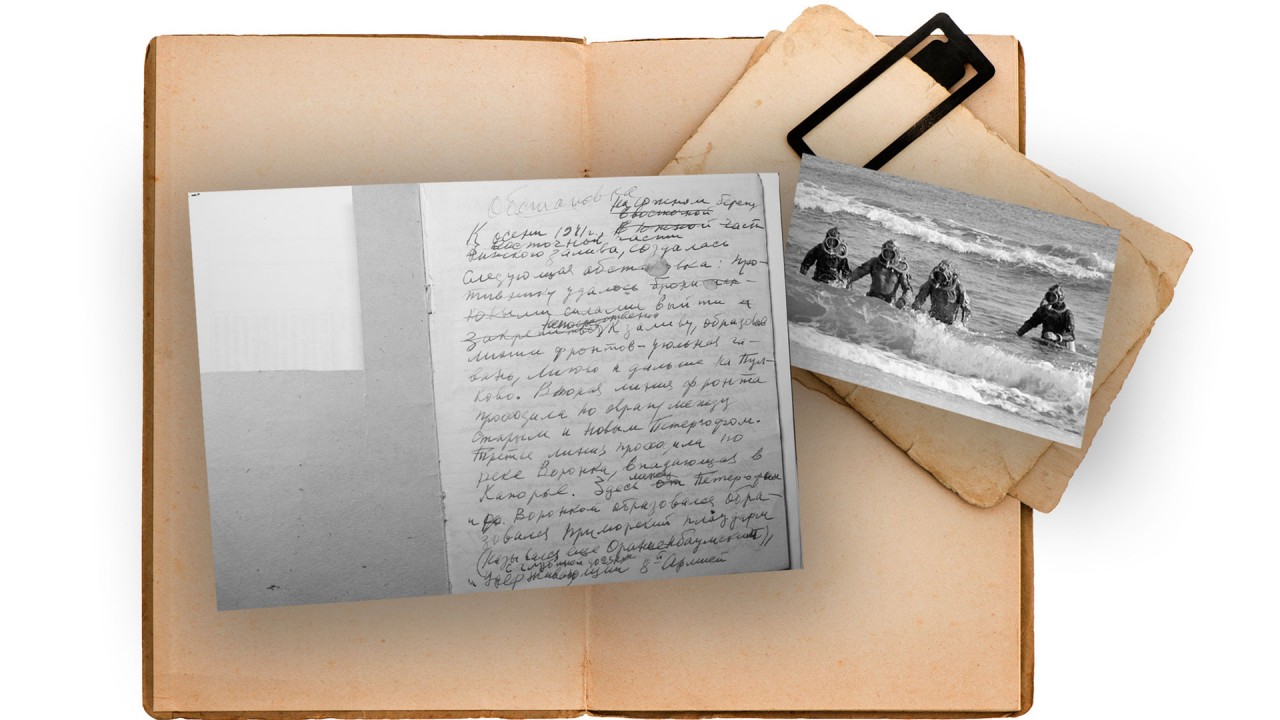 Обстановка
На южном берегу
в восточной
К осени 1941г, в южной части
восточной части
Финского залива, создалась
следующая обстановка: про-
тивнику удалось
силами выйти и
непосредственно
закрепиться к заливу, образовав
линии фронтов - угольная га-
вань, Лигово и дальше на Пул-
ково. Вторая линия фронта
проходила по оврагу между
старым и новым Петергофом.
Третья линия проходила по
реке Воронка, впадающая в
Капорье. Здесь от Петергофа
и до Воронки образовался обра-
зовался приморский плацдарм
(назывался еще Ораниенбаумский),
удерживающий 8й Армией